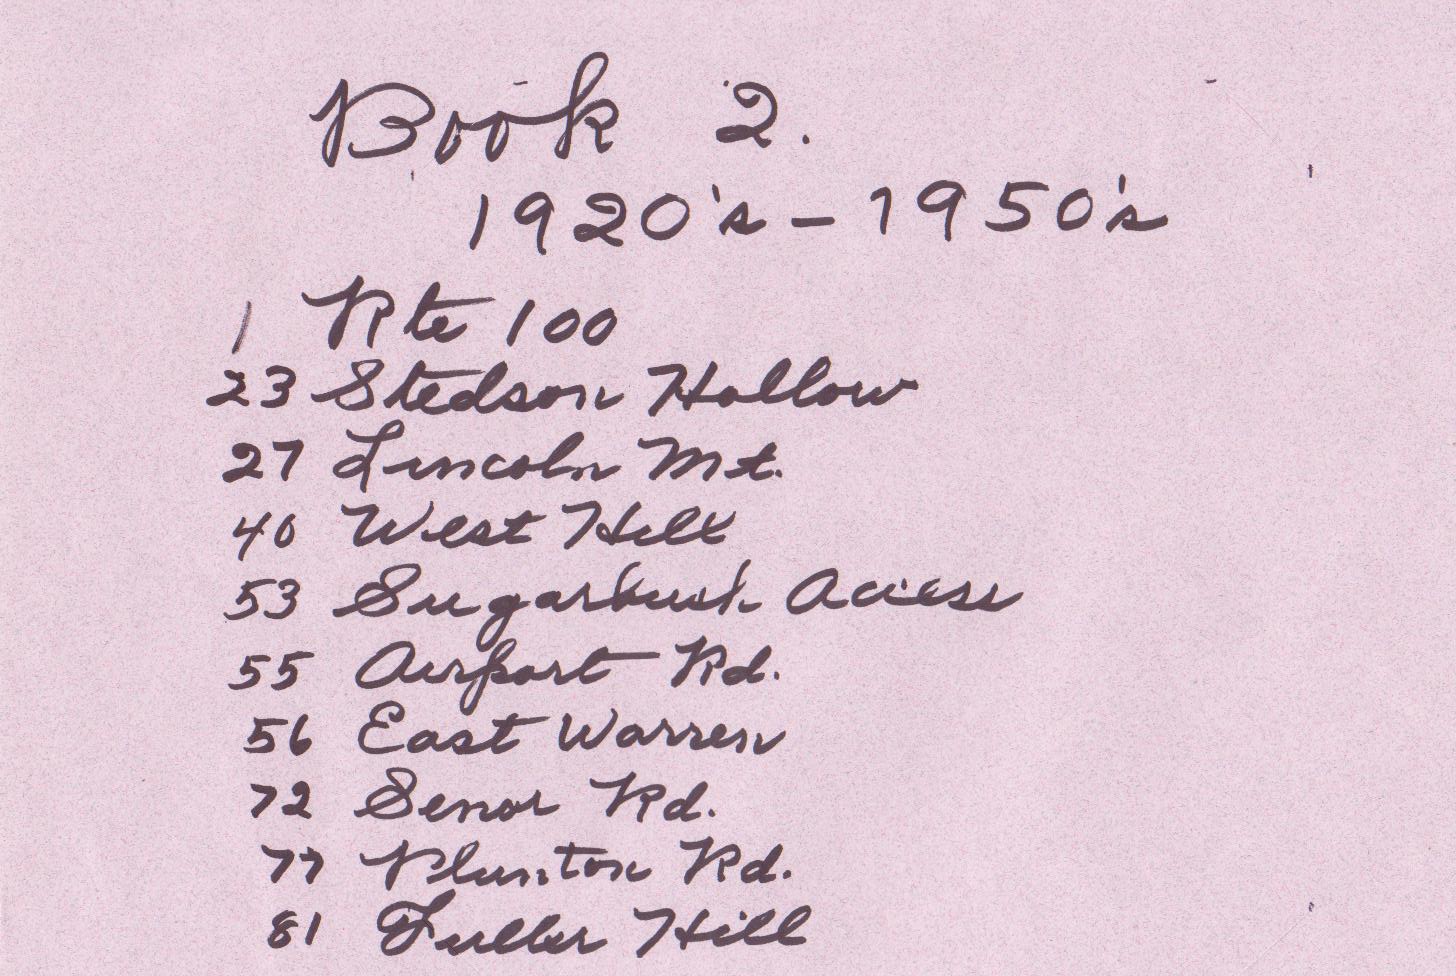 Book 2.
1920's - 1950's
1 Rte 100
23 Stedson Hollow
27 Lincoln Mt.
40 West Hill
53 Sugarbush Access
55 Airport Rd.
56 East Warren
72 Senor Rd.
77 Plunton Rd.
81 Fuller Hill